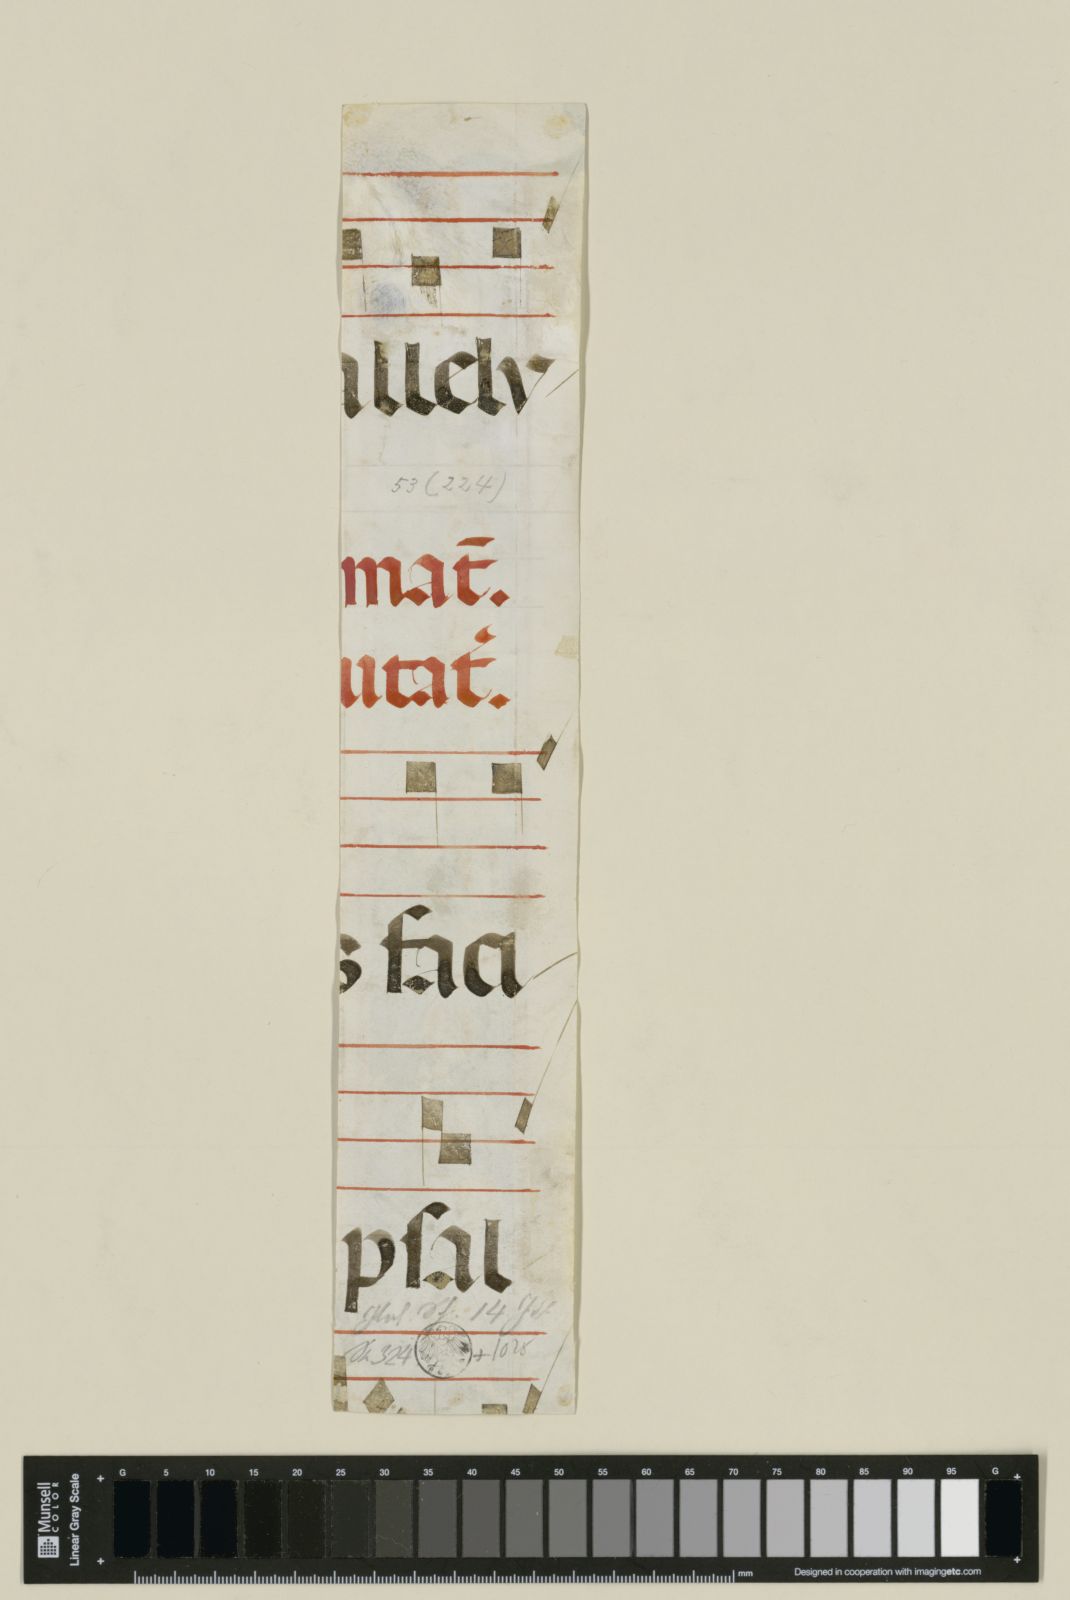 allelv
53 (224)
mat̄.
utat᷑.
s facı
psal
14. Jh
324
+
Munsell
COLOR
Linear Gray Scale
G 5 10 15 20 25 30 35 40 45 50 55 60 65 70 75 80 85 90 95 G
mm
Designed in cooperation with imagingetc.com